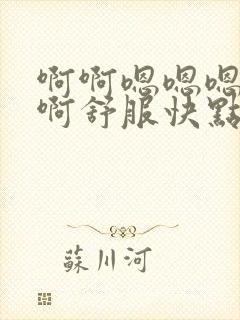 啊啊嗯嗯嗯
啊舒服快點
蘇川河